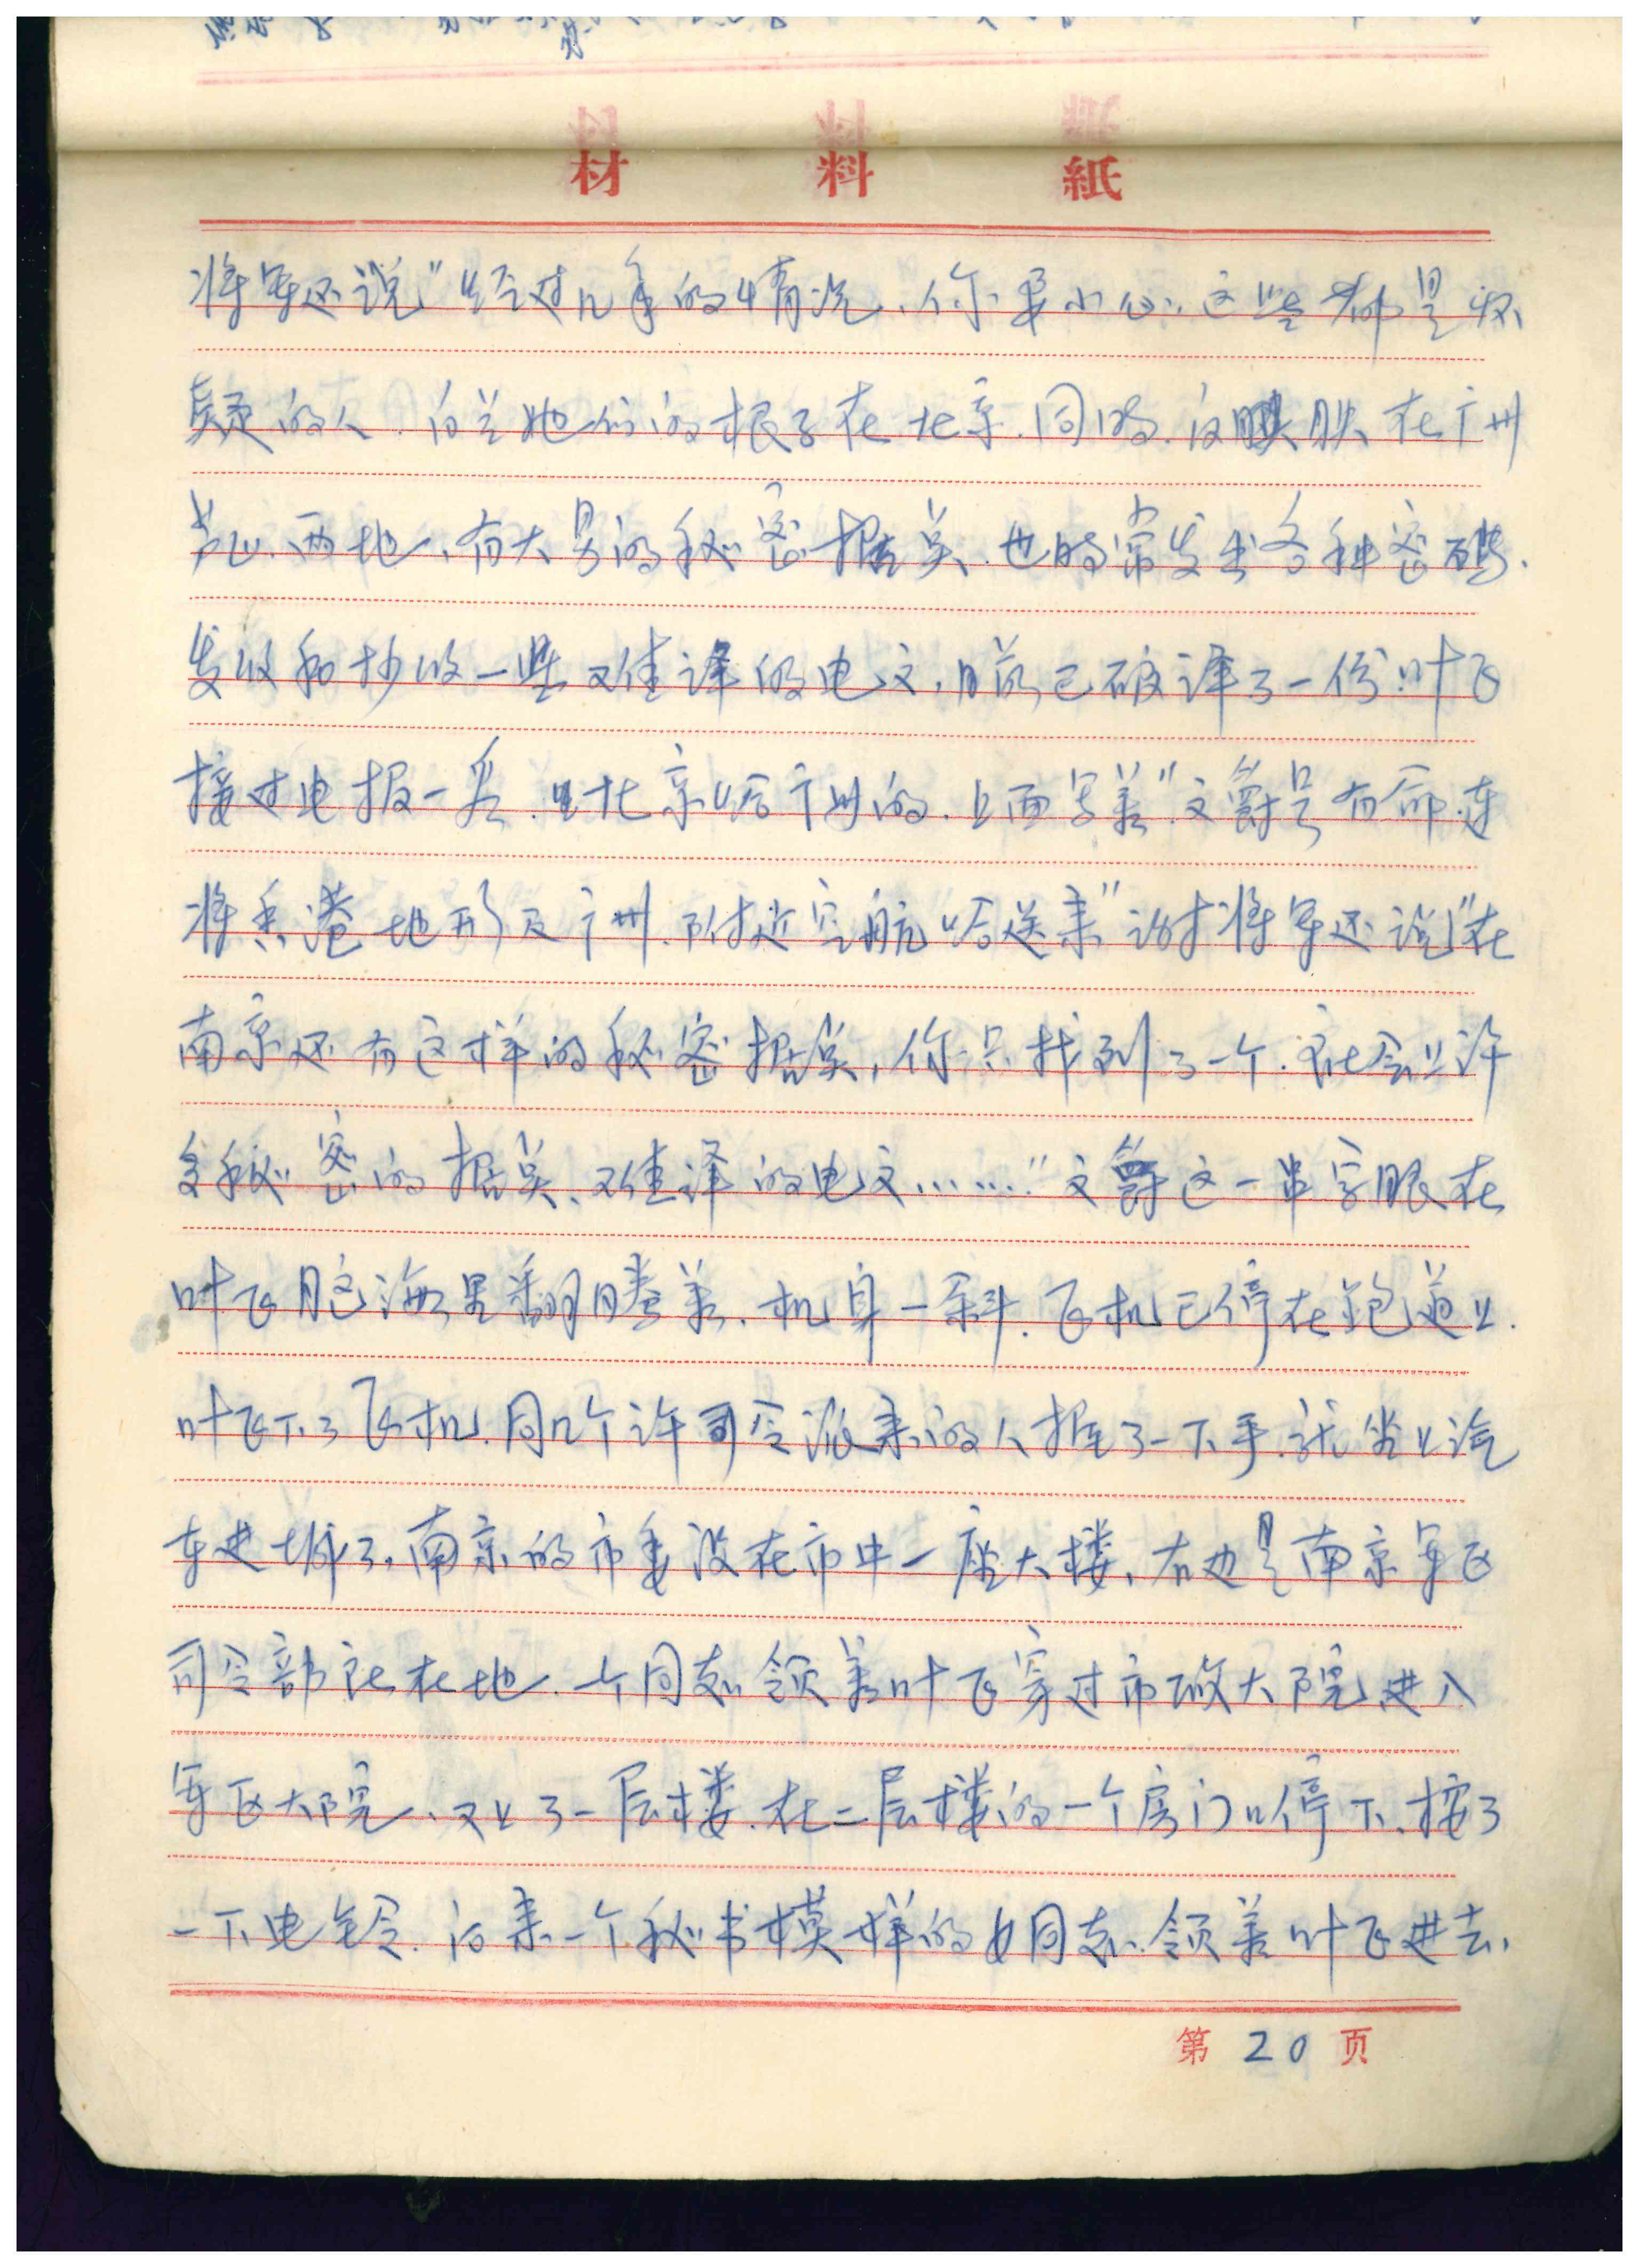 材 料 紙
将军还说"经过几年的情况、你要小心、这些都是怀
疑的人、 她们的根子在北京、同时、 在广州
两地、有大 的秘密据点、也时常发出各种密码、
发收和抄收一些难译的电文,目前已破译了一份"叶飞
接过电报一看、是北京给广州的、上面写着"文爵号有命速
将香港地形及广州、附近空航给送来" 将军还说"在
南京还有这样的秘密据点,你只找到了一个、社会上许
多秘密的据点、难译的电文……"文爵这一串字眼在
叶飞脑海里翻腾着、机身一斜、飞机已停在跑道上.
叶飞下了飞机、同几个许司令派来的人握了一下手、就坐上汽
车进城了,南京的市委设在市中一座大楼,右边是南京军区
司令部所在地、一个同志领着叶飞穿过市政大院进入
军区大院、又上了一层楼、在二层楼的一个房门口停下、按了
一下电铃、 来一个秘书模样的女同志、领着叶飞进去、
第 20 页